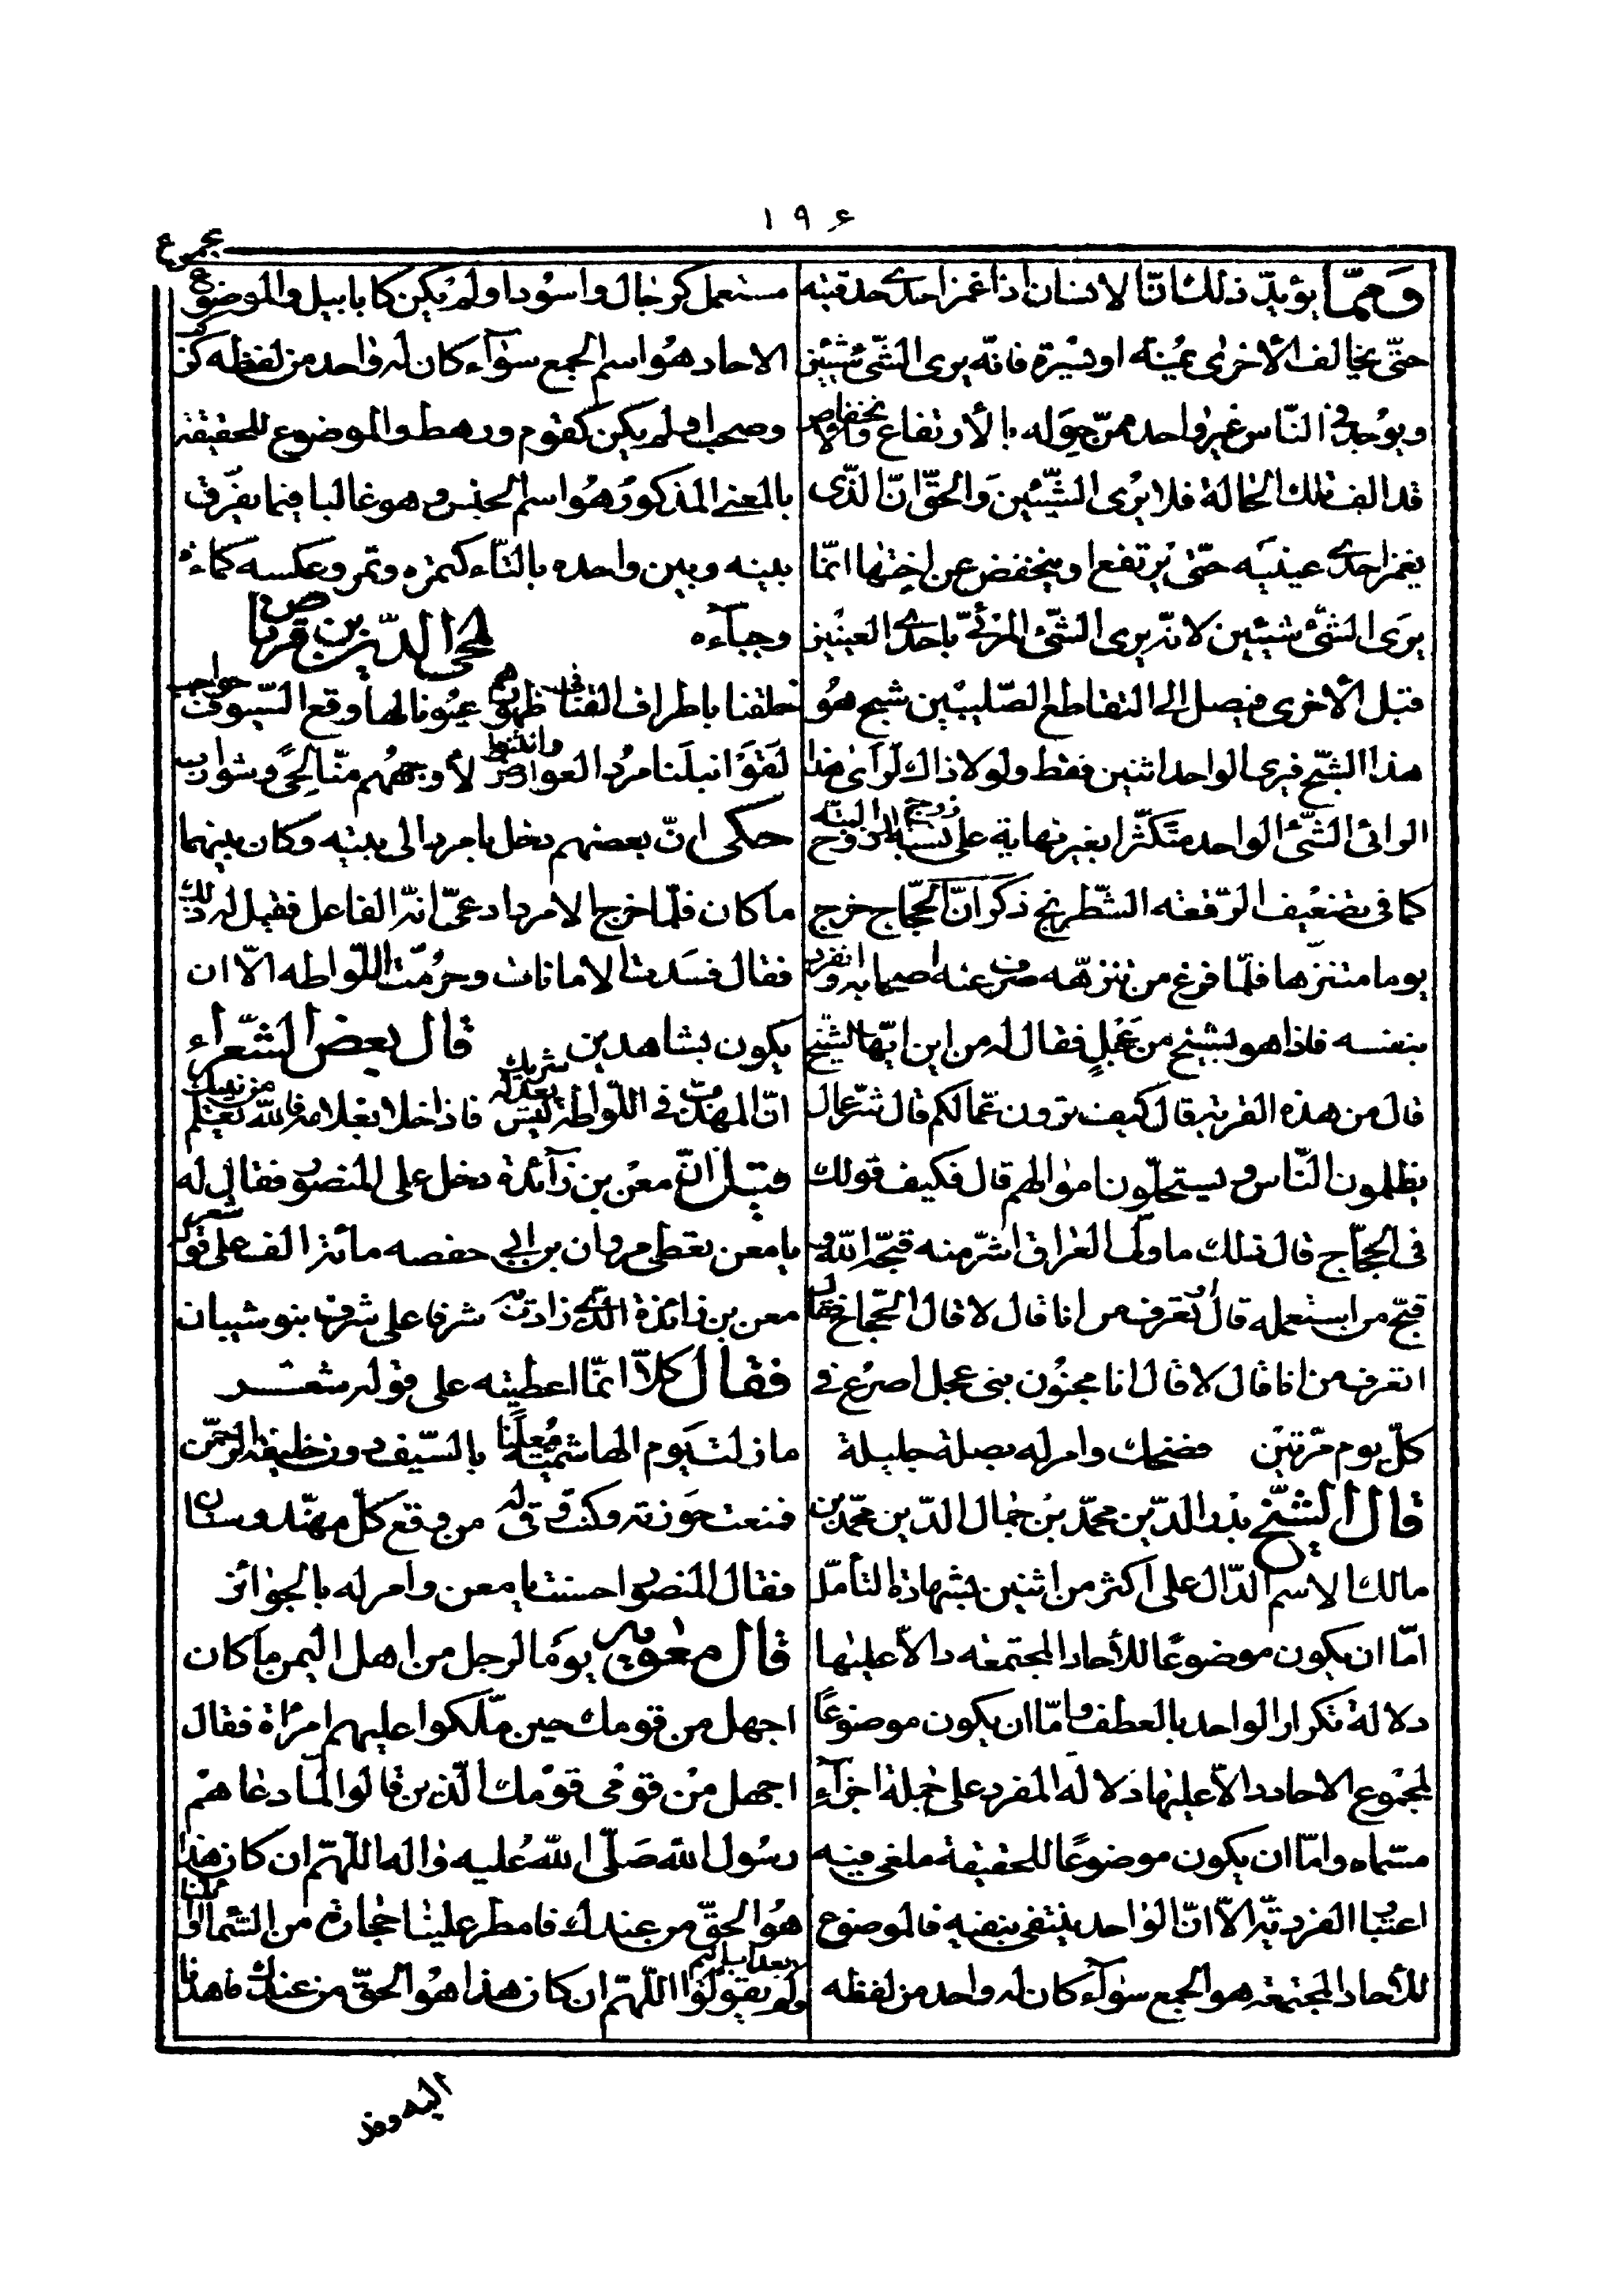 ١٩۶
وَممّا يؤيّد ذلك انّا لانسان اذا غمز احدى حدقتيه
حتّى يخالف الأخرى يمينه او يسيرة فانّه يرى الشّئ شيئين
ويوجد في النّاس غير واحد ممّن حِوَله بالأرتفاع والانخفاض
قد الف تلك الحالة فلا يرى الشّيئين وَالحقّ انّ الذّى
يغمز احدى عينيه حتّى يرتفع او ينخفض عن اختها انّما
يرَى الشّئ شيئين لانّه يرى الشّئ المرئىّ باحدى العينين
قبل الأخرى فيصل الى التقاطع الصّليبيّن شبح هُو
هذا الشّبح فيرى الواحد اثنين فقط ولولا ذاك لَرَأى هذا
الرائى الشّئ الواحد متكثّرا بغير نهاية على نسبة زوج الزوج البتّه
كما في تضعيف الرّقعه الشّطرنج ذكر انّ الحجّاج خرج
يوما متنزّها فلمّا فرغ من تنزهّه صرف عنه اصحابه وانفرد
بنفسه فاذا هو بشيخ من عِجْلٍ فقال له من اين ايّها الشيّخ
قال من هذه القرية قال كيف ترون عمّالكم قال شرّ عمال
يظلمون النّاس ويستحلّون اموالهم قال فكيف قولك
في الحجّاج قال ذلك ما ولّى العراق اشرّ منه قبّحه الله و
قبّح من استعمله قال اتعرف من انا قال لا قال الحجّاج فقال
اتعرف من انا قال لا قال انا مجنون بنى عجل اصرع في
كلّ يوم مرّتين فضحك وامر له بصلة جليلة
قال الشيّخ بدر الدّين محمّد بن جمال الدّين محمّد بن
مالك الاسم الدّال على اكثر من اثنين بشهادة التأمّل
امّا ان يكون موضوعًا للأحاد المجتمعه دالّا عليها
دلالة تكرار الواحد بالعطف وامّا ان يكون موضوعًا
لمجموع الاحاد دالّا عليها دلالة المفرد على جملة اجزآءِ
مسمّاه وامّا ان يكون موضوعًا للحقيقة ملغى فيه
اعتبار الفرديّة الّا انّ الواحد ينتفى بنفيه فالموضوع
للأحاد المجتمعة هو الجمع سوآء كان له واحد من لفظه
مجموع
مستعمل كرجال واسُود او لم يكن كابابيل والموضوع
الاحاد هُو اسم الجمع سوآء كان له واحد من لفظه كركب
وصحب او لم يكن كقوم ورهط والموضوع للحقيقة
بالمعنى المذكور هُو اسم الجنس وهو غالبا فيما يفرّق
بينه وبين واحده بالتّاء كتمره وتمر وعكسه كماءة
وجبآءه لمحى الدّين بن قرناص
نطقنا باطراف القنا في ظهورهم عيُونا لها وقع السّيوف حواجب
لقوَا نبلَنا مُرد العوارض وانثنوا لأوجههم منّا لحًى وشوارب
حكى انّ بعضهم دخل بامرد الى بيته وكان بينهما
ما كان فلمّا خرج الامرد ادعىّ انّه الفاعل فقيل له ذلك
فقال فسَدت الامانات وحرُمّت اللّواطه الّا ان
يكون بشاهدين قال بعض الشّعراء
انّ المهذّب في اللّواطة ليس يعدله شريك فاذا خلا بغلامه فالله يعلم من ينيك
قيل انّ معن بن زآئدة دخل على المنصور فقال له
يا معن تعطى مروان بن ابى حفصه مائة الف على قوله شعر
معن بن زائدة الّذى زادت به شرفا على شرف بنو شيبان
فقال كلّا انّما اعطيته على قوله شعر
ما زلت يَوم الهاشميّة مُعلَنا بالسّيف دون خليفة الرّحمن
فمنعت حَوزته وكنت وقآءً له من وقع كلّ مهنّد وسنان
فقال المنصور احسنت يا معن وامر له بالجوائز
قال معٰوية يومًا لرجل من اهل اليمن ما كان
اجهل من قومك حين ملّكوا عليهم امرأة فقال
اجهل مِنْ قومى قوْمك الّذين قالوا لمّا دعاهمْ
رسُول اللهَ صَلّى اللهُ عُليه واله اللّهمّ ان كان هذا
هُو الحقّ من عندك فامطر علينا حجارة من السّماء او ائتنا
بعذاب اليم ولم يقولوا اللّهمّ ان كان هذا هُو الحقّ من عندك فاهدنا
اليه وفد